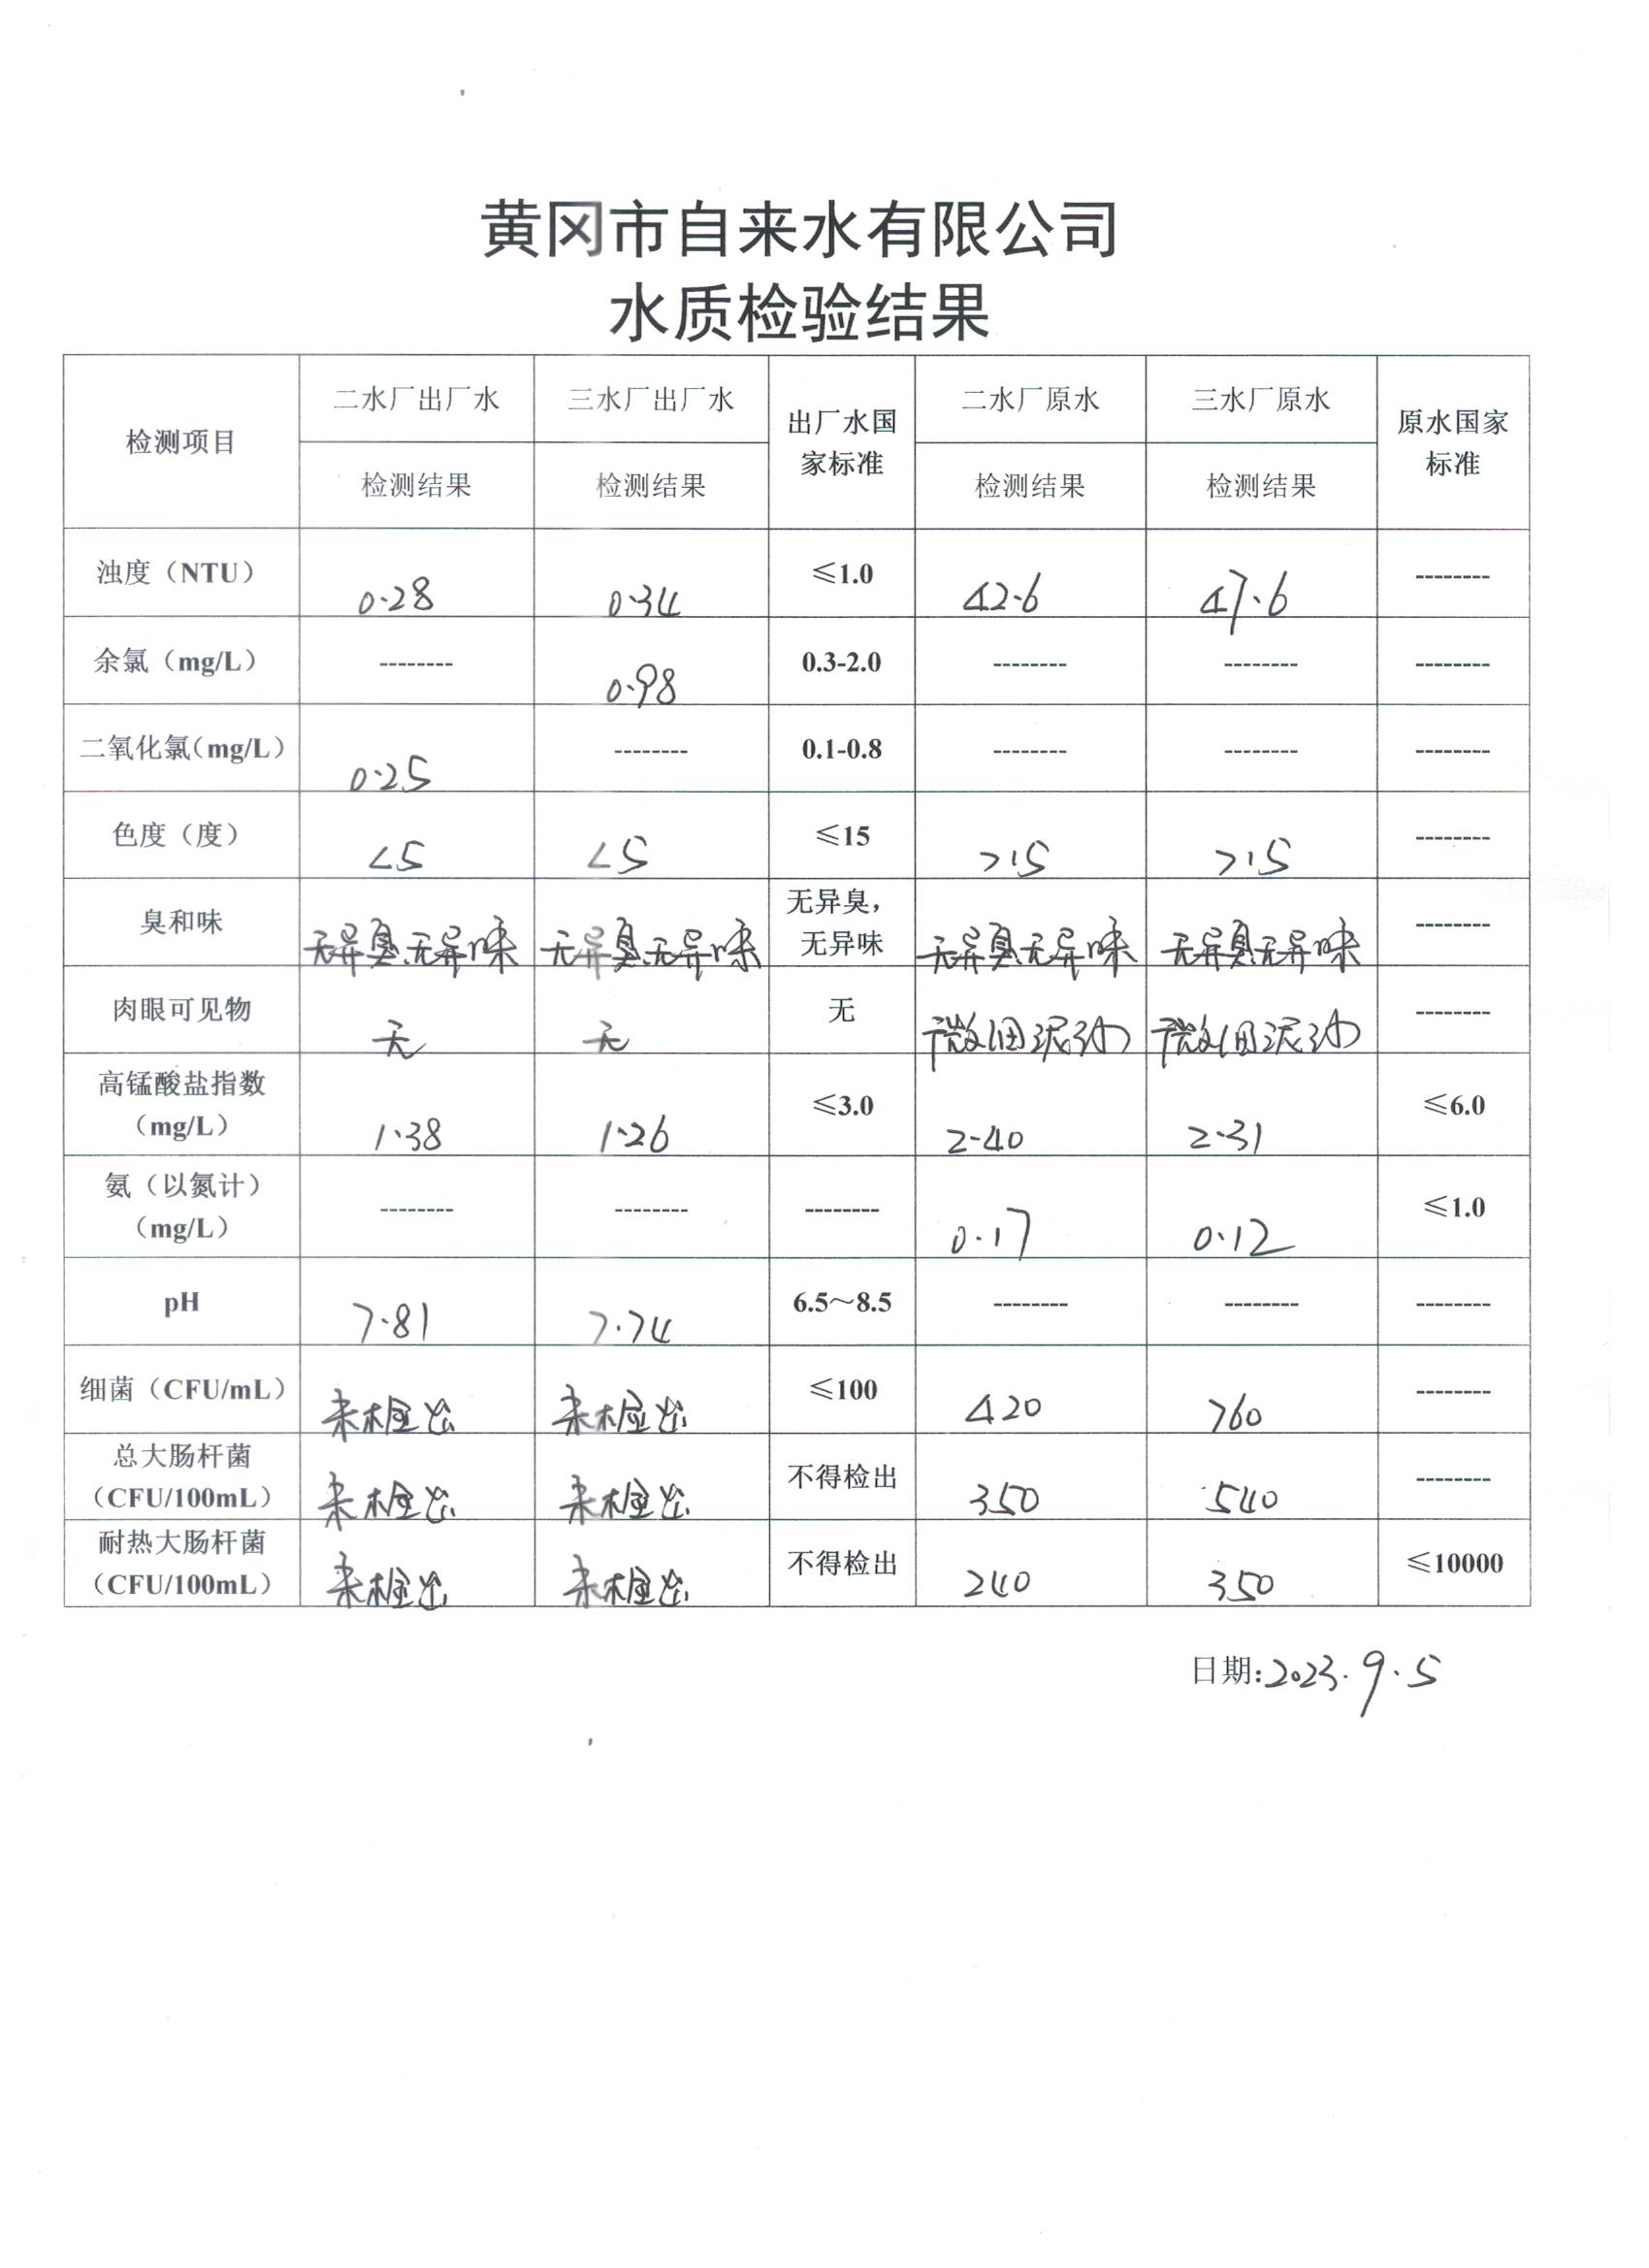 黄冈市自来水有限公司
水质检验结果
检测项目 二水厂出厂水 三水厂出厂水 出厂水国家标准 二水厂原水 三水厂原水 原水国家标准
检测结果 检测结果 检测结果 检测结果
浊度（NTU） 0.28 0.34 ≤1.0 42.6 47.6 --------
余氯（mg/L） -------- 0.98 0.3-2.0 -------- -------- --------
二氧化氯（mg/L） 0.25 -------- 0.1-0.8 -------- -------- --------
色度（度） <5 <5 ≤15 >15 >15 --------
臭和味 无异臭.无异味 无异臭.无异味 无异臭，无异味 无异臭无异味 无异臭无异味 --------
肉眼可见物 无 无 无 微细泥沙 微细泥沙 --------
高锰酸盐指数（mg/L） 1.38 1.26 ≤3.0 2.40 2.31 ≤6.0
氨（以氮计）（mg/L） -------- -------- -------- 0.17 0.12 ≤1.0
pH 7.81 7.74 6.5～8.5 -------- -------- --------
细菌（CFU/mL） 未检出 未检出 ≤100 420 760 --------
总大肠杆菌（CFU/100mL） 未检出 未检出 不得检出 350 540 --------
耐热大肠杆菌（CFU/100mL） 未检出 未检出 不得检出 240 350 ≤10000
日期:2023.9.5